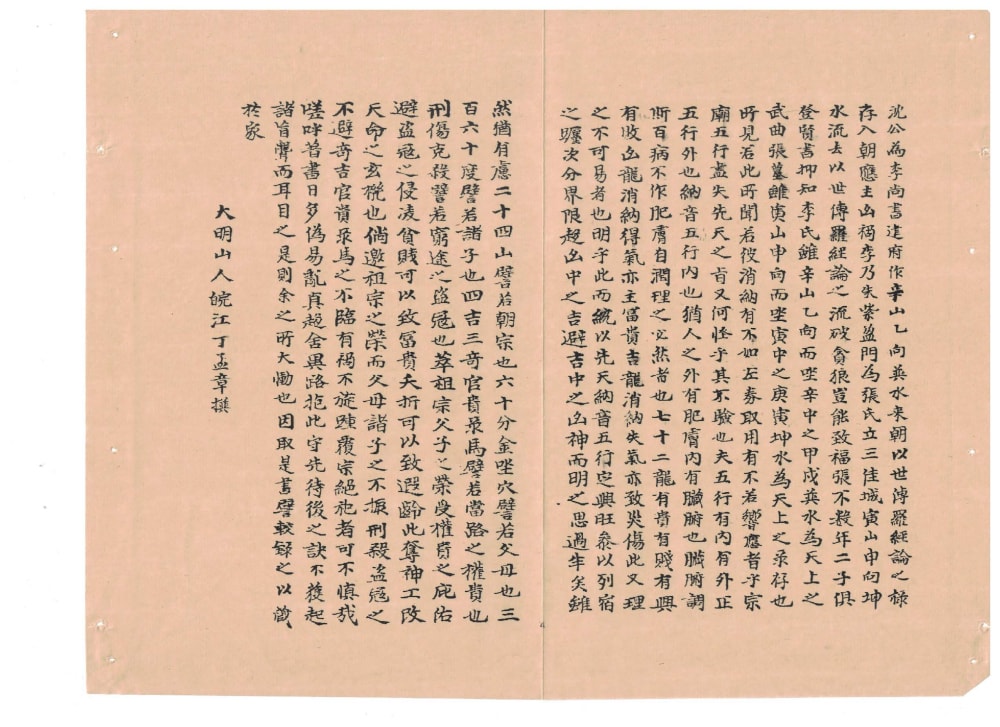 沈公為李尚書遣府作辛山乙向巽水来朝以世傳羅經論之祿
存入朝應主凶禍李乃朱紫盈門為張氏立三佳城寅山申向坤
水流去以世傳羅經論之流破貪狼豈能致福張不数年二子俱
登賢書抑知李氏雖辛山乙向而坐辛中之甲戌巽水為天上之
武曲張墓雖寅山申向而坐寅中之庚寅坤水為天上之录存也
所見若此所聞若彼消納有不如左券取用有不若響應者乎宗
廟五行盡失先天之旨又何怪乎其不驗也夫五行有内有外正
五行外也納音五行内也猶人之外有肥膚内有臟腑也臟腑調
斯百病不作肥膚自潤理之必然者也七十二龍有貴有賤有興
有敗凶龍消納得氣亦主富貴吉龍消納失氣亦致災傷此又理
之不可易者也明乎此而統以先天納音五行定興旺叅以列宿
之躔次分界限趨凶中之吉避吉中之凶神而明之思過半矣雖
然猶有慮二十四山譬若朝宗也六十分金坐穴譬若父母也三
百六十度譬若諸子也四吉三奇官貴录馬譬若當路之權貴也
刑傷克殺譬若窮途之盜冠也萃祖宗父子之榮受權貴之庇佑
避盜冠之侵凌貧賤可以致冨貴夭折可以致遐齡此奪神工改
天命之玄機也倘邀祖宗之榮而父母諸子之不振刑殺盜冠之
不避奇吉官貴录馬之不臨有禍不旋踵覆宗絕祀者可不慎哉
嗟呼昔書日多偽易亂真趨舍異路抱此守先待後之訣不獲起
諸盲聾而耳目之是則余之所大慟也因取是書譬較録之以藏
於家
大明山人皖江丁孟章撰